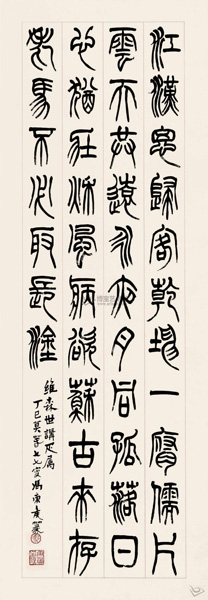 江漢思歸客乾坤一腐儒片
雲天共遠永夜月同孤落日
心猶壯秌風病欲蘇古來存
老馬不必取長塗
維森世講正屬
丁巳莫春七七叟馮康矦篆